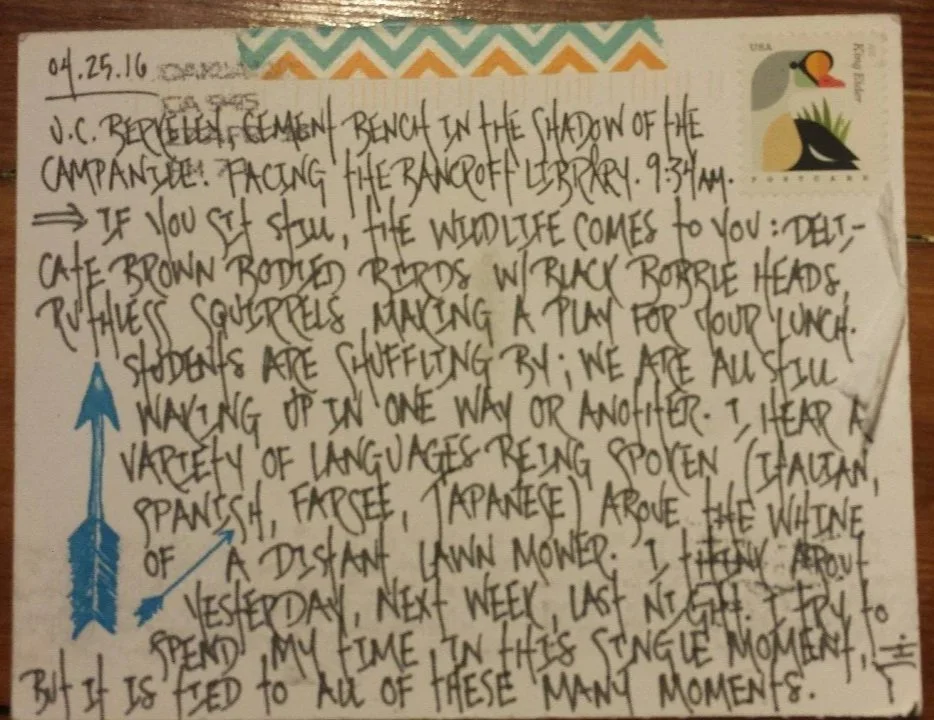 04.25.16
OAKLAND
CA 945
USA
King Eider
POSTCARD
U.C. BERKELEY, CEMENT BENCH IN THE SHADOW OF THE
CAMPANILE. FACING THE BANCROFT LIBRARY. 9:34 AM.
⇒ IF YOU SIT STILL, THE WILDLIFE COMES TO YOU: DELI-
CATE BROWN BODIED BIRDS W/ BLACK BOBBLE HEADS,
RUTHLESS SQUIRRELS MAKING A PLAY FOR YOUR LUNCH.
STUDENTS ARE SHUFFLING BY; WE ARE ALL STILL
WAKING UP IN ONE WAY OR ANOTHER. I HEAR A
VARIETY OF LANGUAGES BEING SPOKEN (ITALIAN,
SPANISH, FARSEE, JAPANESE) ABOVE THE WHINE
OF A DISTANT LAWN MOWER. I THINK ABOUT
YESTERDAY, NEXT WEEK, LAST NIGHT. I TRY TO
SPEND MY TIME IN THIS SINGLE MOMENT,
BUT IT IS TIED TO ALL OF THESE MANY MOMENTS.